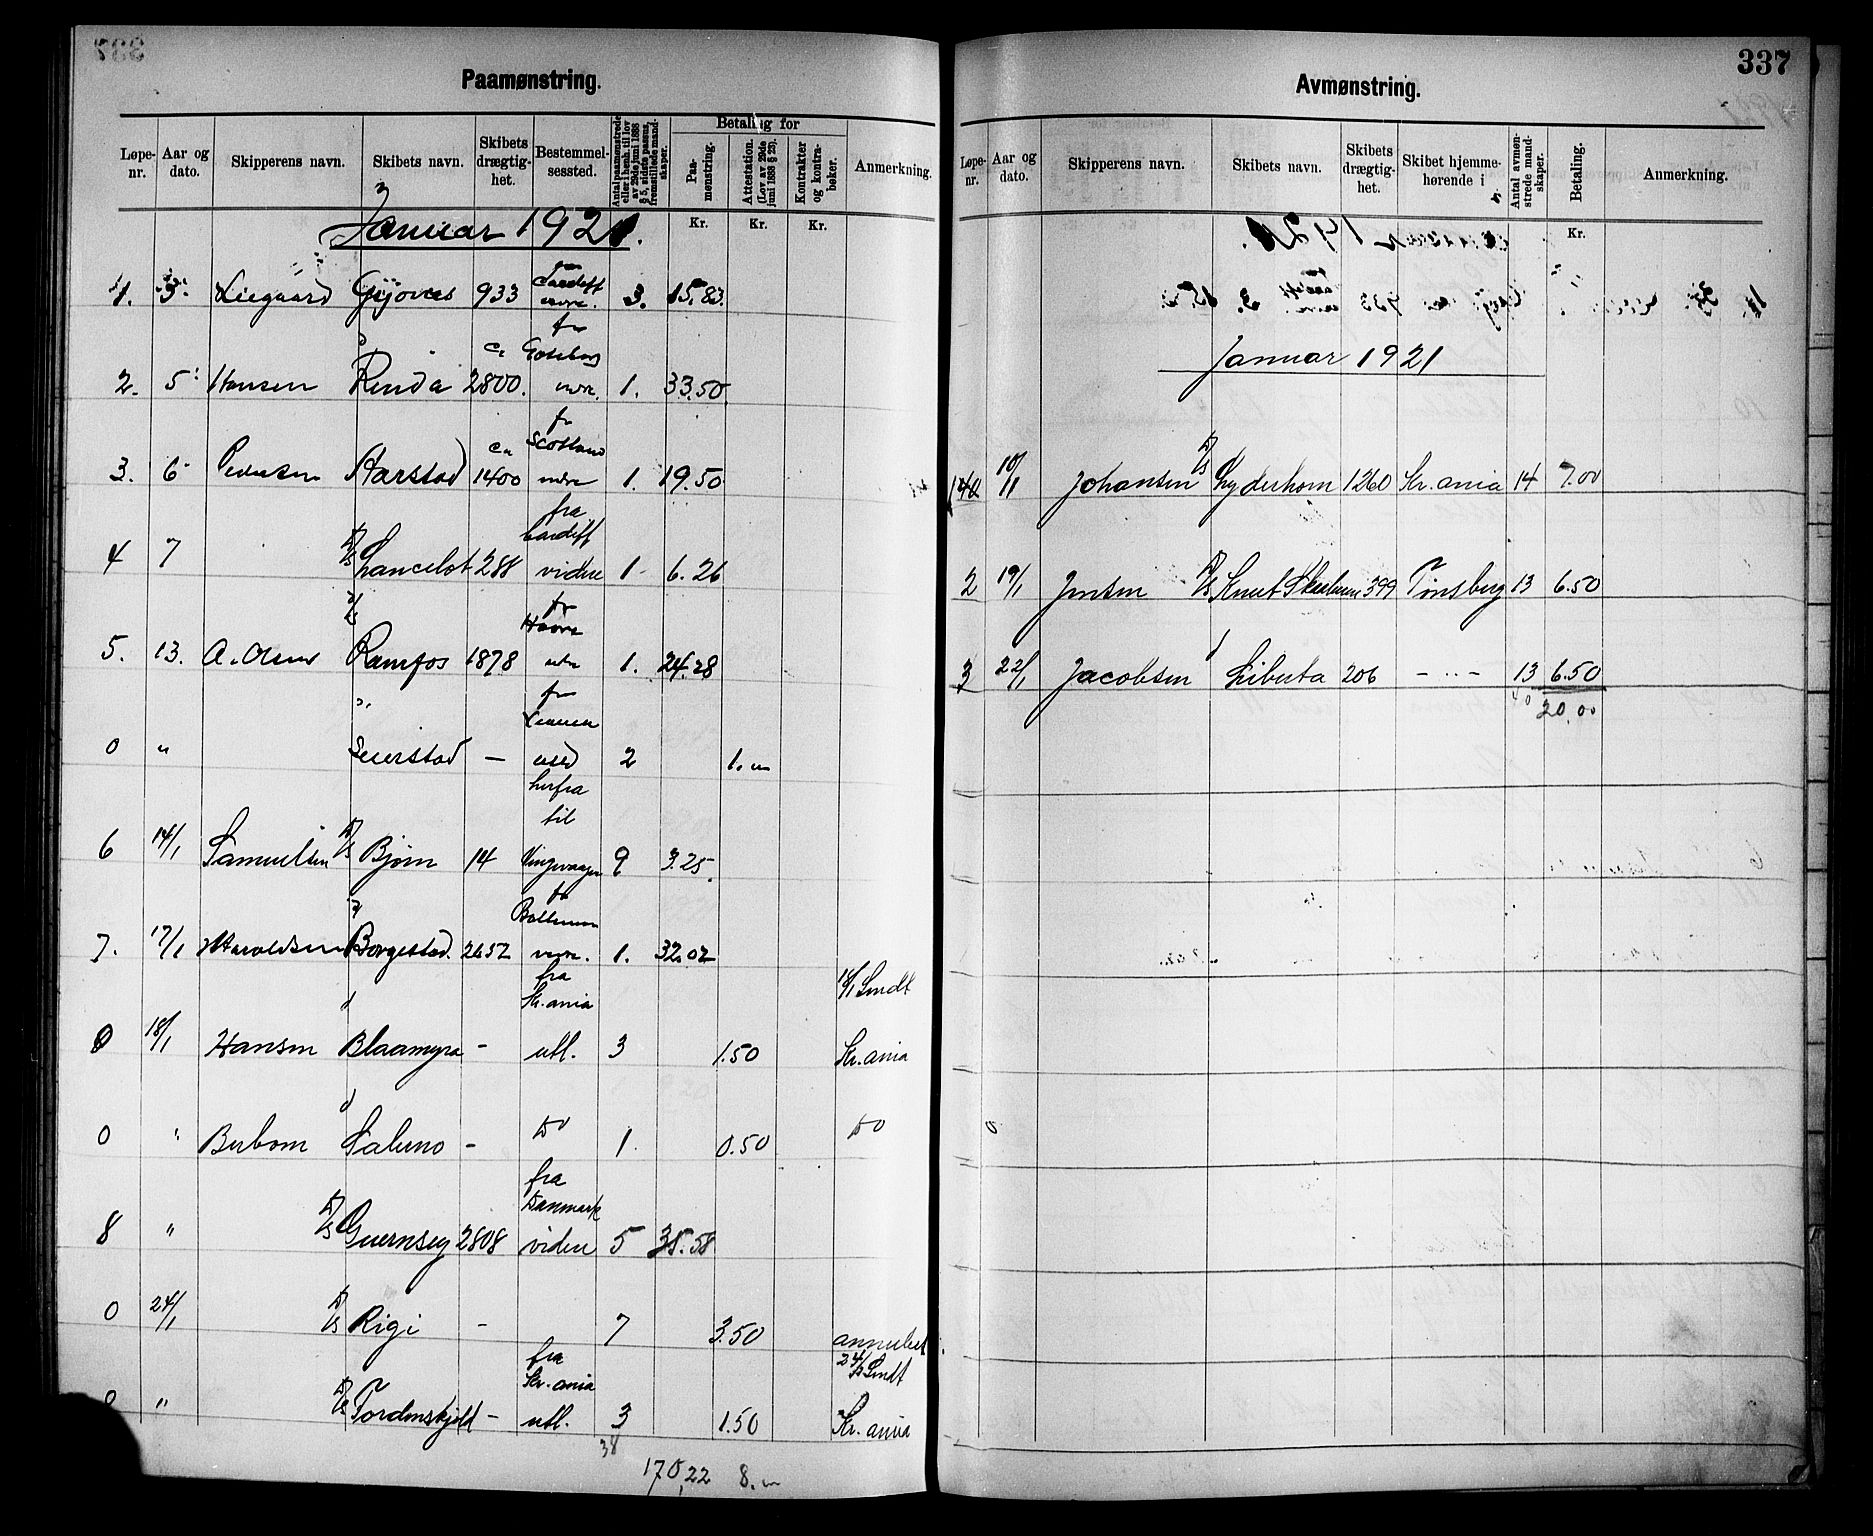 Paamønstring.
Løpe-nr. Aar og dato. Skipperens navn. Skibets navn. Skibets drægtig-het. Bestemmel-sessted. Antal paamønstrede eller i henh. til lov av 29de juni 1888 § 5, sidste passus, fremstillede mand-skaper. Betaling for Paa-mønstring. Attestation. (Lov av 29de juni 1888 § 29). Kontrakter og kontra-bøker. Anmerkning.
Kr. Kr. Kr.
Januar 1921.
1. 3. Liegaard 933 fra Cardiff vidre. 3. 15.83.
2. 5 Hansen Rinda ca 2800. fra Gøteborg vidre. 1. 33.50
3. 6 Pedersen Aarstad ca 1400 fra Scotland vidre 1. 19.50
4 7 D/S Lancelot 288 fra Cardiff videre 1 6.26
5. 13. A. Olsen D/S Ramfos 1878 fra Havre vidre 1. 24.28
0 " Seierstad — 2 1.
6 14/1 Samuelsen D/S Bjørn 14 herfra til Vingevaagen 9 3.25
7. 17/1 Haroldsen Borgestad. 2657 vidre. 1. 32.02
0 18/1 Hansen Blaamyra - fra Kr.ania utl. 3 1.50 18/1 Sendt Kr.ania
0 " Berbom Salerno - Do 1 0.50 Do
8 " D/S Guernsey 2808 fra Danmark videre 5 35.58
0 24/1 D/S Rigi - 7 3.50 annulert
0 " D/S Tordenskjold - fra Kr.ania utl. 3 1.50 24/1 Sendt Kr.ania
38 170,22 8.
337
Avmønstring.
Løpe-nr. Aar og dato. Skipperens navn. Skibets navn. Skibets drægtig-het. Skibet hjemme-hørende i Antal avmøn-strede mand-skaper. Betaling. Anmerkning.
Kr.
Januar 1921
1 10/1 Johansen D/S Lyderhorn 1260 Kr.ania 14 7.00
2 19/1 Jensen D/S Knut Skaaluren 399 Tønsberg 13 6.50
3 22/1 Jacobsen Liberta 206 - " - 13 6.50
40 20,00